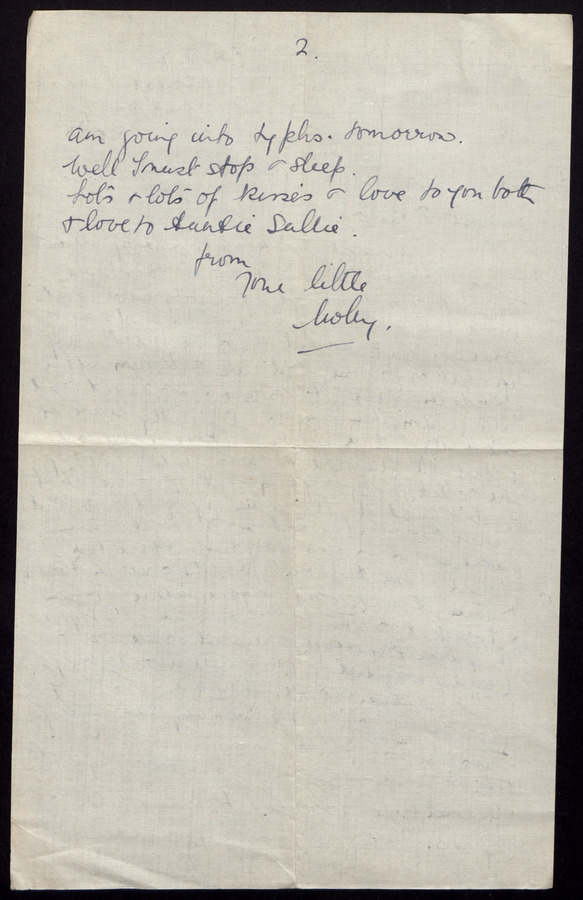 2.
am going into typhs. tomorrow.
Well I must stop & sleep.
Lots & lots of kisses & love to you both
& love to Auntie Sallie.
from
Your little